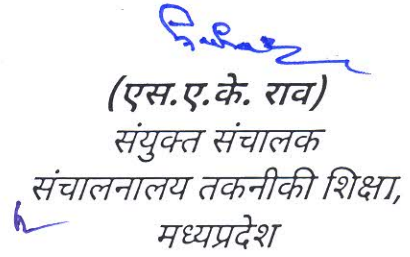 (एस.ए.के. राव)
संयुक्त संचालक
संचालनालय तकनीकी शिक्षा,
मध्यप्रदेश